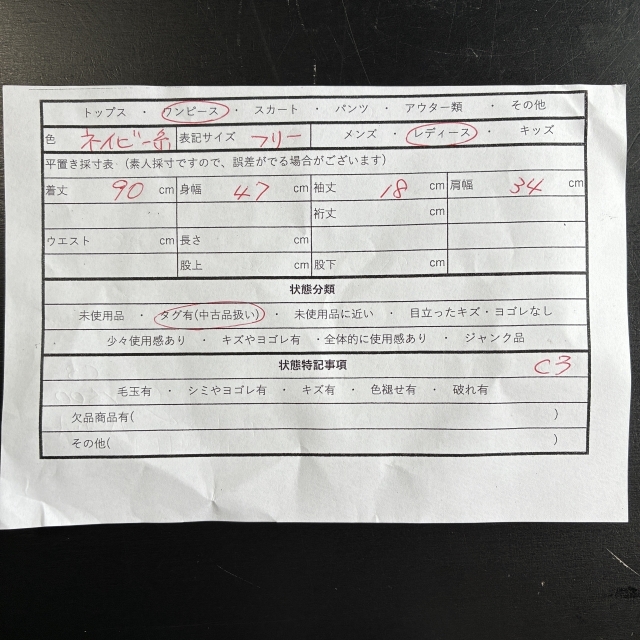 トップス ・ ワンピース ・ スカート ・ パンツ ・ アウター類 ・ その他
色 ネイビー系 表記サイズ フリー メンズ ・ レディース ・ キッズ
平置き採寸表（素人採寸ですので、誤差がでる場合がございます）
着丈 90 cm 身幅 47 cm 袖丈 18 cm 肩幅 34 cm
裄丈 cm
ウエスト cm 長さ cm
股上 cm 股下 cm
状態分類
未使用品 ・ タグ有(中古品扱い) ・ 未使用品に近い ・ 目立ったキズ・ヨゴレなし
・ 少々使用感あり ・ キズやヨゴレ有 ・全体的に使用感あり ・ ジャンク品
状態特記事項 C3
毛玉有 ・ シミやヨゴレ有 ・ キズ有 ・ 色褪せ有 ・ 破れ有
欠品商品有( )
その他( )